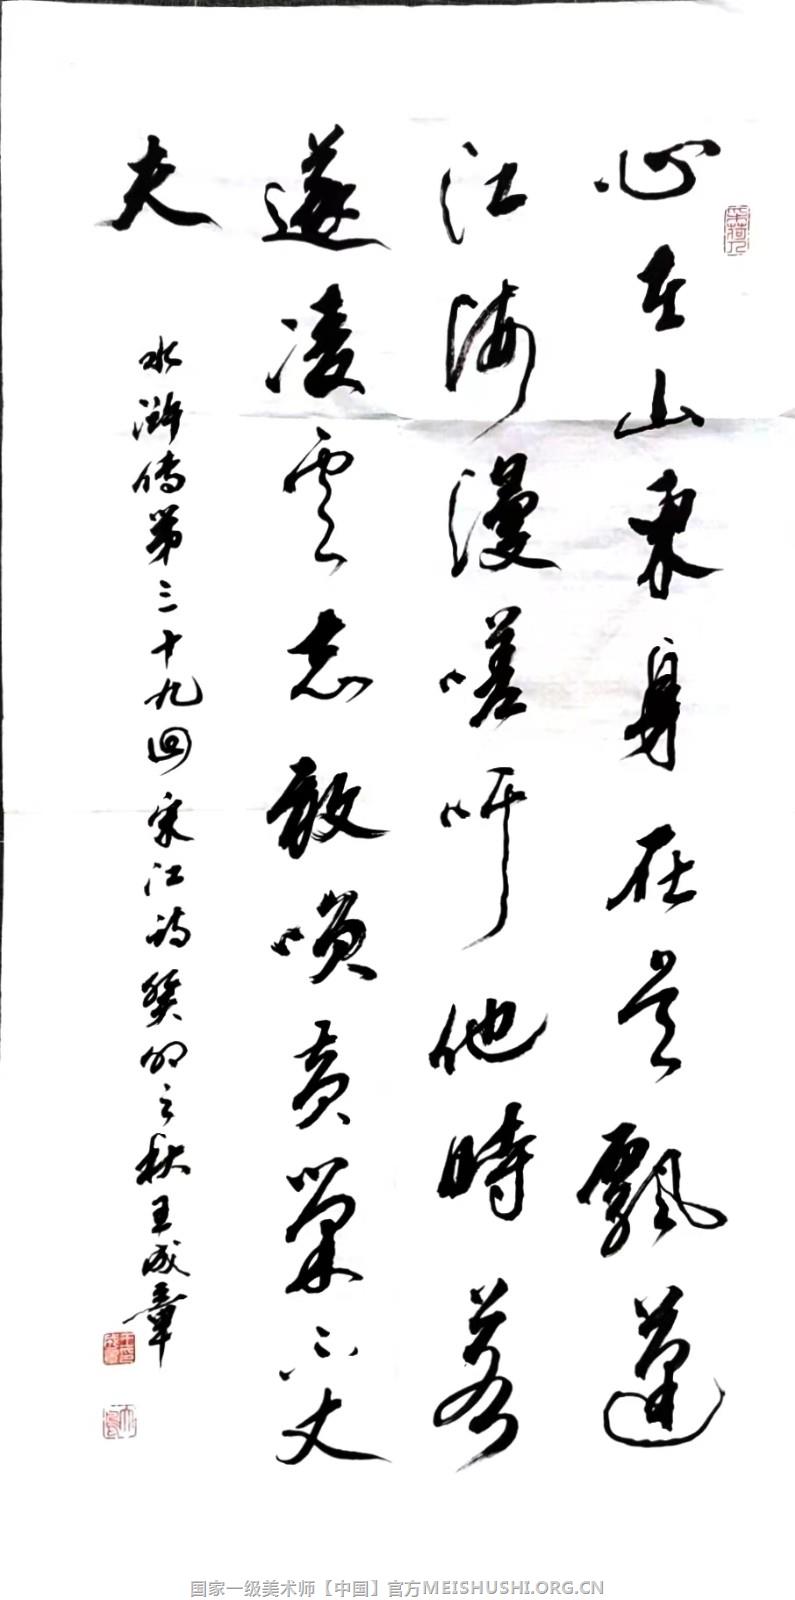 心在山東身在吴飄蓬
江海漫嗟吁他時若
遂凌雲志敢黄巢不丈
夫
水滸傳第三十九回宋江詩癸卯之秋王成章
国家一级美术师【中国】官方MEISHUSHI.ORG.CN